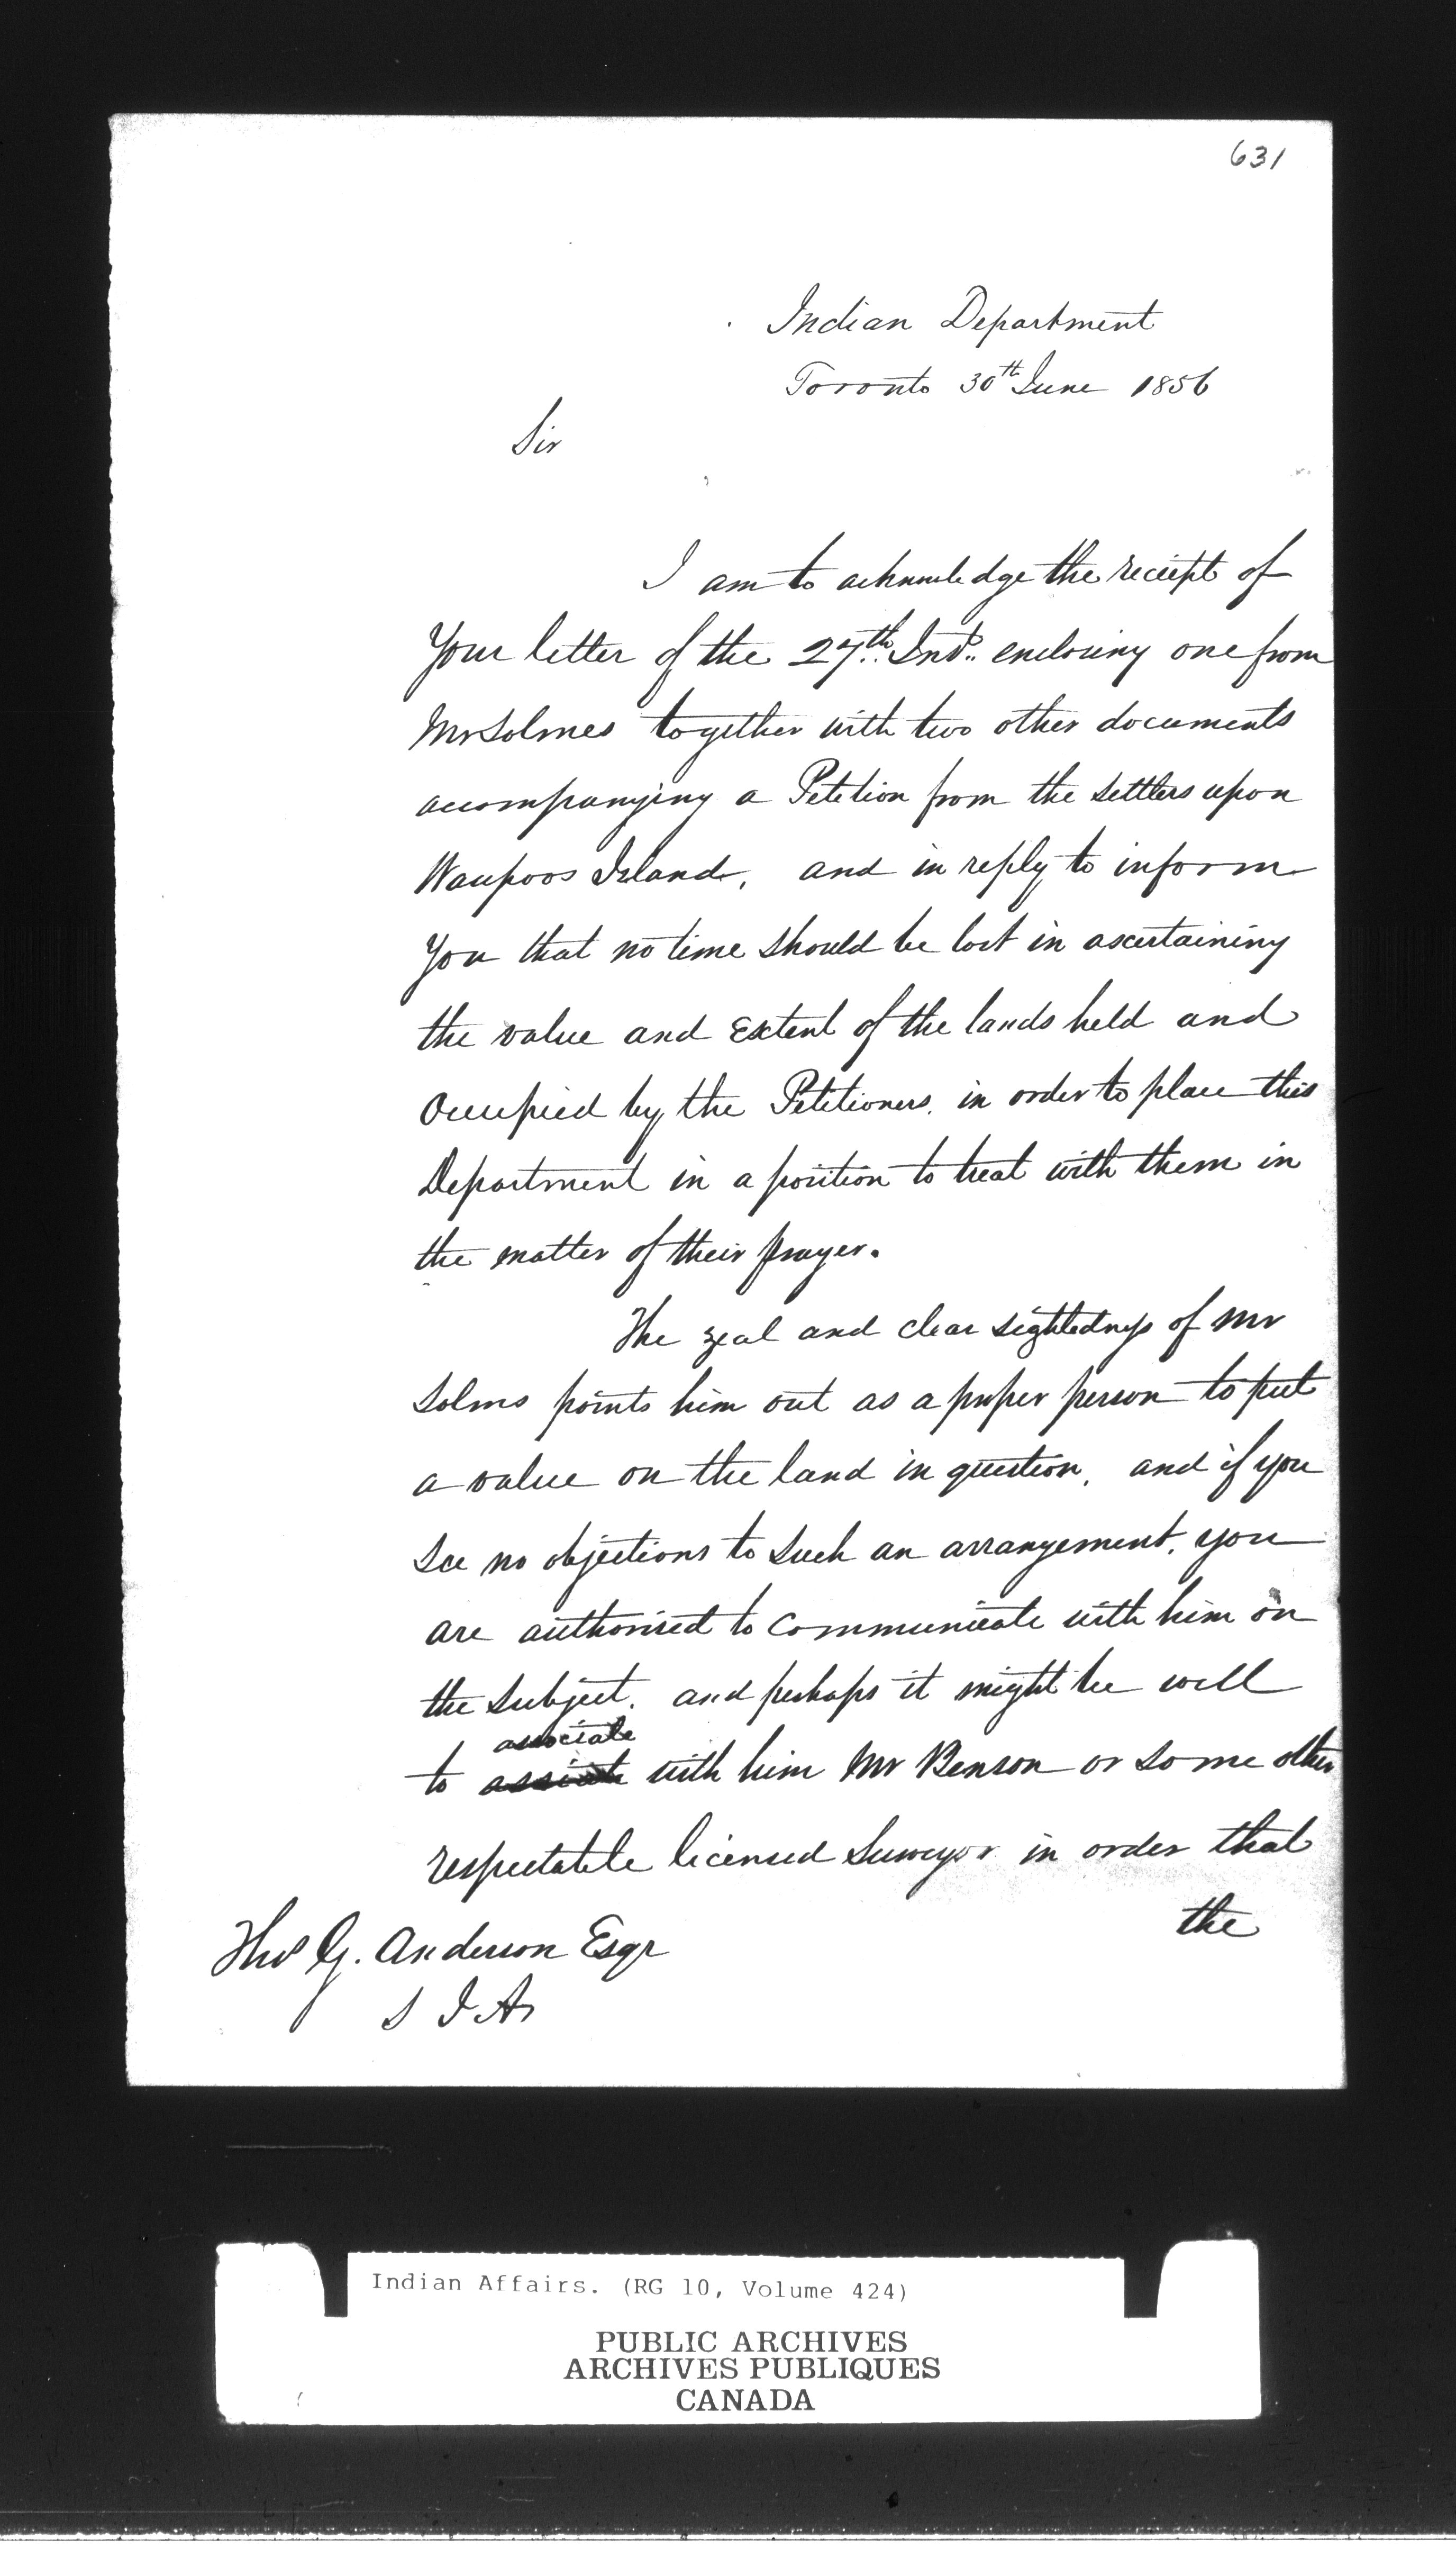 631
Indian Department
Toronto 30th June 1856
Sir
I am to acknowledge the receipt of
Your letter of the 27th Inst. enclosing one from
Mr Solmes together with two other documents
accompanying a Petition from the settlers upon
Waupoos Island, and in reply to inform
You that no time should be lost in ascertaining
the value and Extent of the lands held and
Occupied by the Petitioners, in order to place this
Department in a position to treat with them in
the matter of their prayer.
The zeal and clear sightedness of Mr
Solmes points him out as a proper person to put
a value on the land in question, and if you
see no objections to such an arrangement, you
are authorised to communicate with him on
the subject, and perhaps it might be well
associate
to with him Mr Benson or some other
respectable licensed Surveyor in order that
the
Thos G. Anderson Esqr
S I A
Indian Affairs. (RG 10, Volume 424)
PUBLIC ARCHIVES
ARCHIVES PUBLIQUES
CANADA